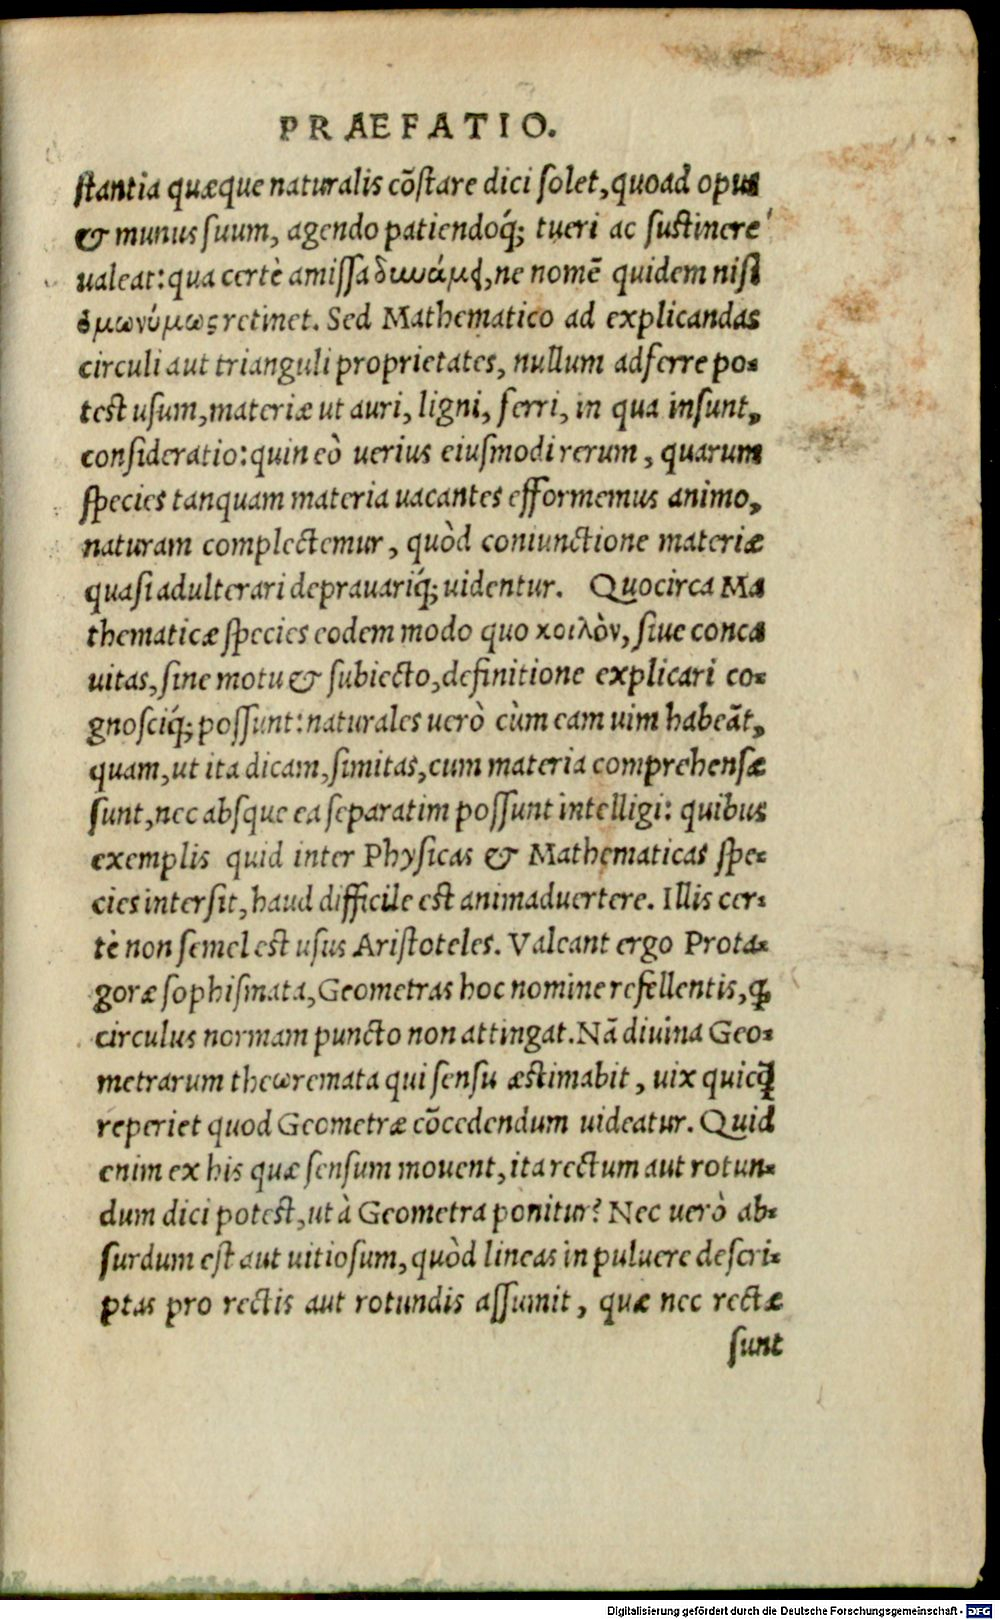 PRAEFATIO.
stantia quæque naturalis cõstare dici solet, quoad opus
& munus suum, agendo patiendoq́; tueri ac sustinere
ualeat: qua certè amissa δυνάμει, ne nomẽ quidem nisi
ὁμωνύμως retinet. Sed Mathematico ad explicandas
circuli aut trianguli proprietates, nullum adferre po-
test usum, materiæ ut auri, ligni, ferri, in qua insunt,
consideratio: quin eò uerius eiusmodi rerum, quarum
species tanquam materia uacantes efformemus animo,
naturam complectemur, quòd coniunctione materiæ
quasi adulterari deprauariq́; uidentur. Quocirca Ma
thematicæ species eodem modo quo κοιλὸν, siue conca
uitas, sine motu & subiecto, definitione explicari co-
gnosciq́; possunt: naturales uerò cùm eam uim habeãt,
quam, ut ita dicam, simitas, cum materia comprehensæ
sunt, nec absque ea separatim possunt intelligi: quibus
exemplis quid inter Physicas & Mathematicas spe-
cies intersit, haud difficile est animaduertere. Illis cer-
tè non semel est usus Aristoteles. Valeant ergo Prota-
goræ sophismata, Geometras hoc nomine refellentis, ꝙ
circulus normam puncto non attingat. Nã diuina Geo-
metrarum theωremata qui sensu æstimabit, uix quicq̃
reperiet quod Geometræ cõcedendum uideatur. Quid
enim ex his quæ sensum mouent, ita rectum aut rotun-
dum dici potest, ut à Geometra ponitur? Nec uerò ab-
surdum est aut uitiosum, quòd lineas in puluere descri-
ptas pro rectis aut rotundis assumit, quæ nec rectæ
sunt
Digitalisierung gefördert durch die Deutsche Forschungsgemeinschaft - DFG